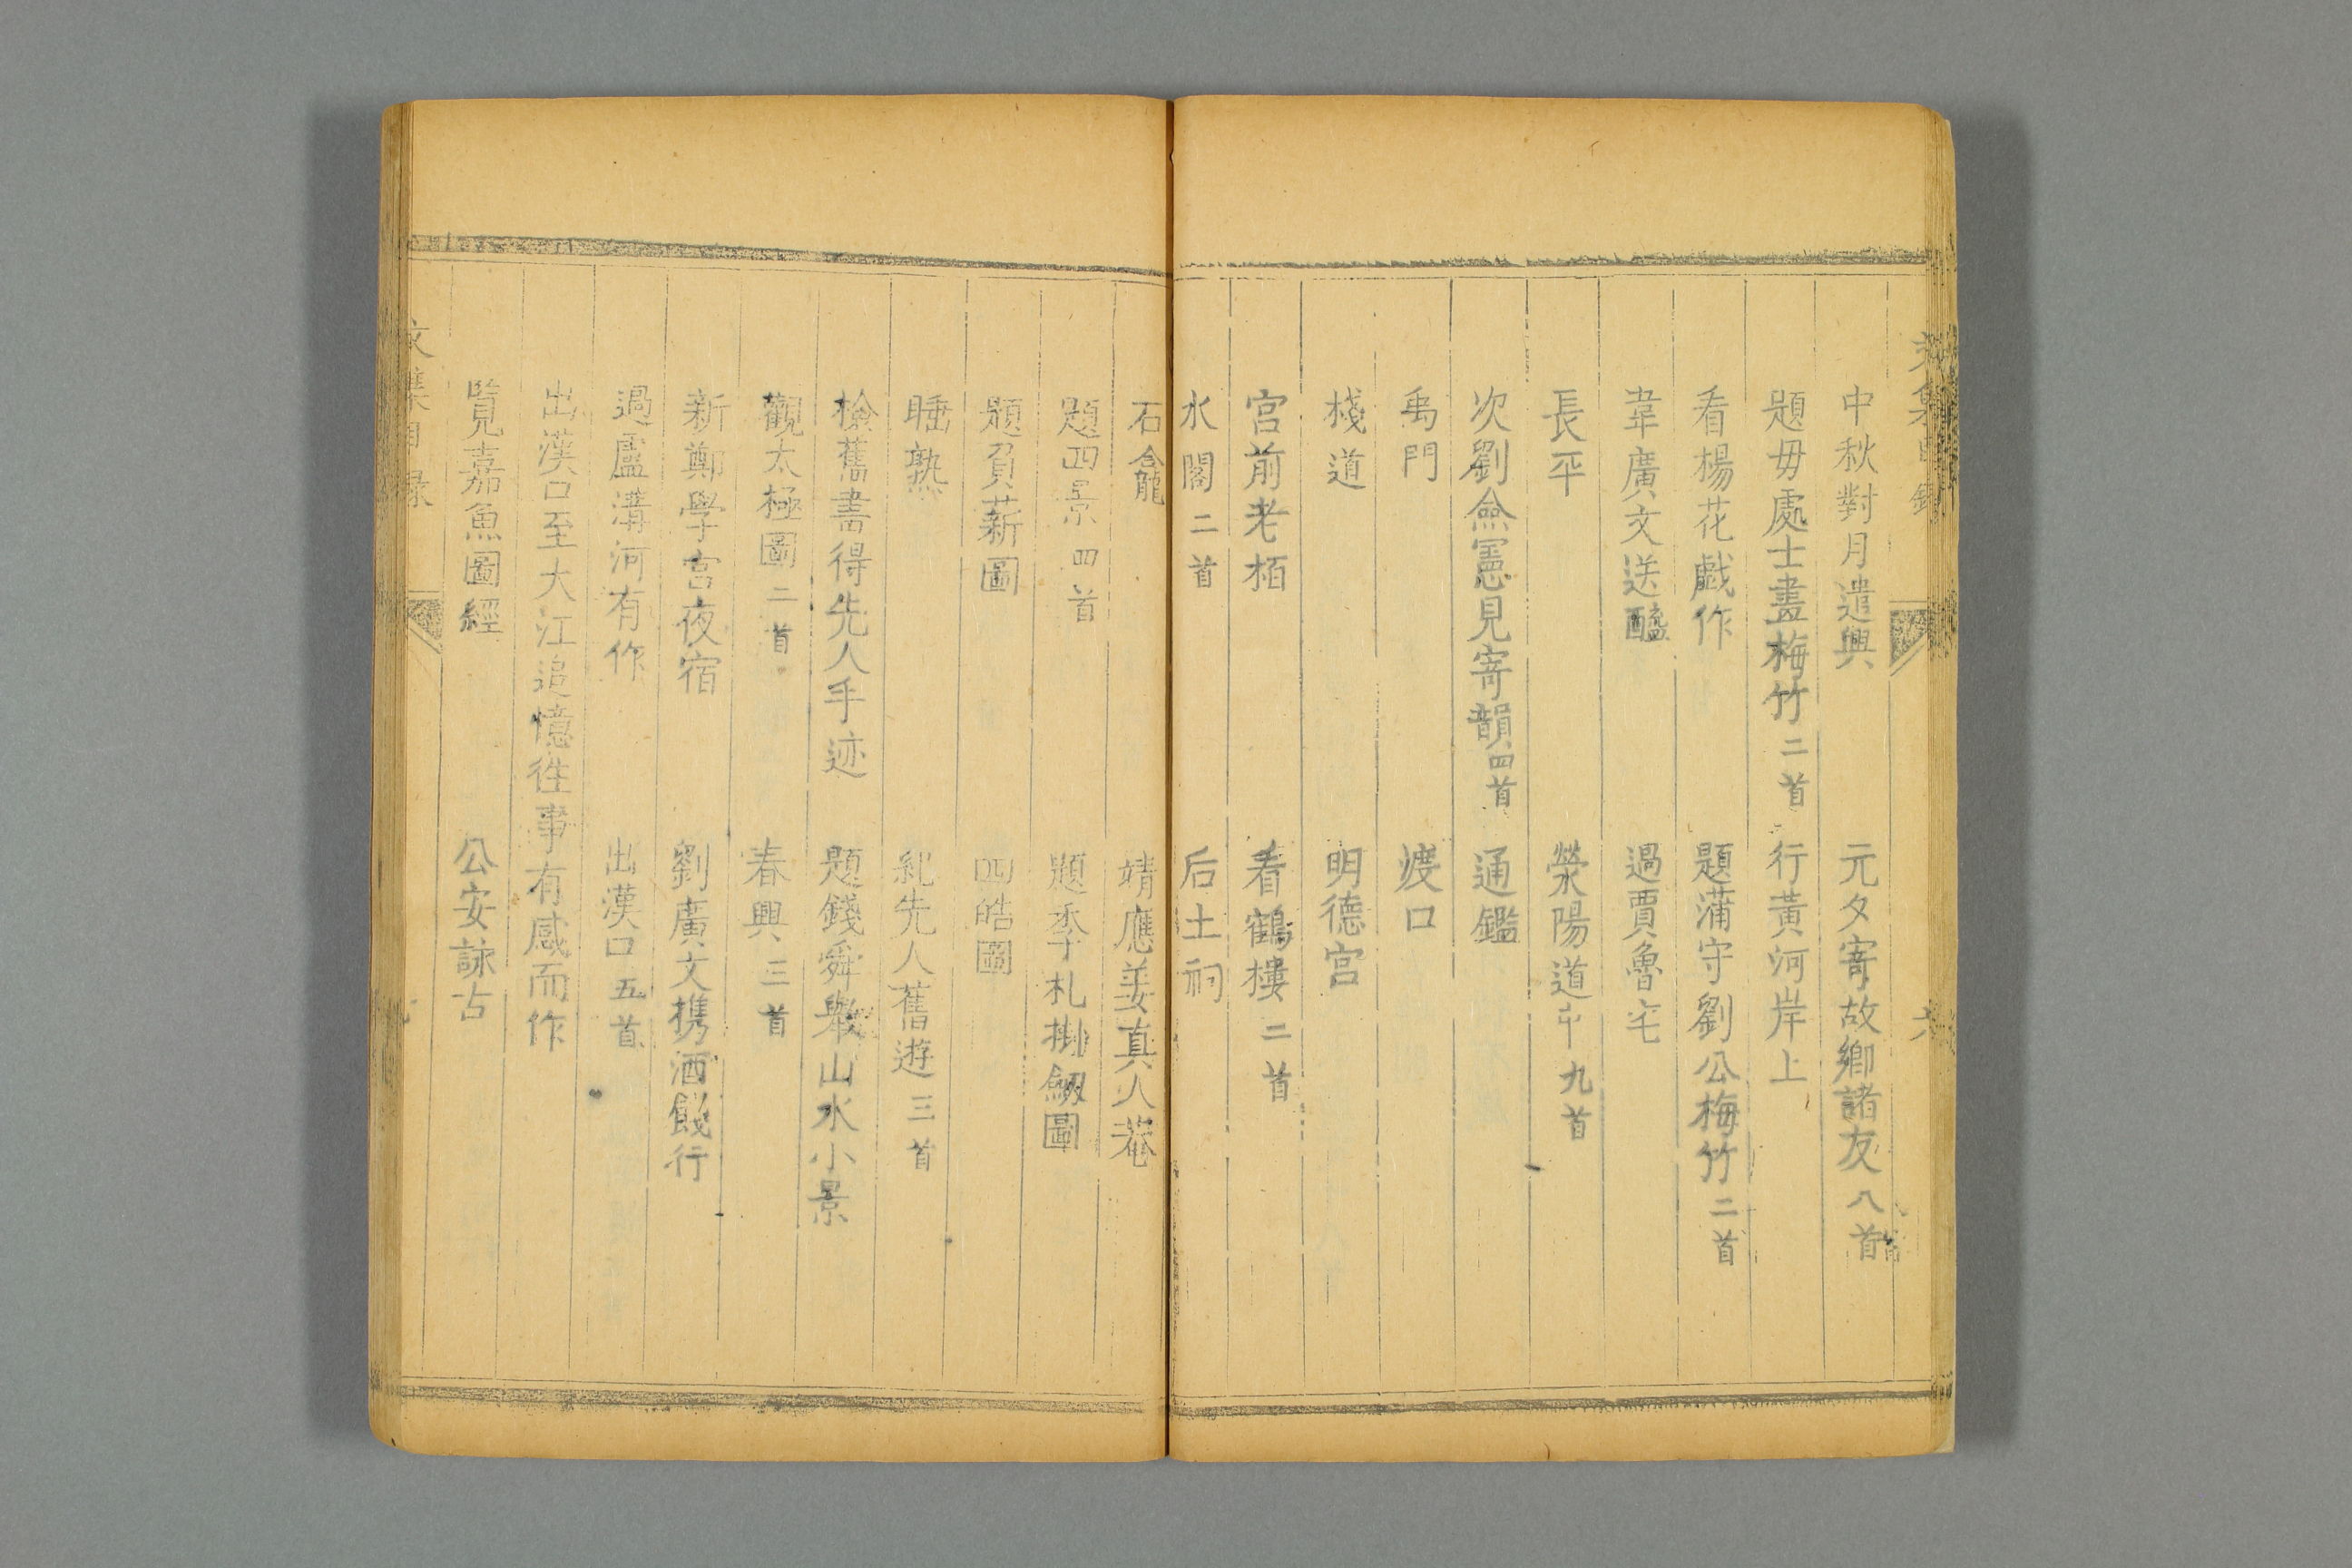 中秋對月遣興　元夕寄故鄉諸友八首
題毋處士畫梅竹二首　行黃河岸上
看楊花戲作　題蒲守劉公梅竹二首
韋廣文送醯　過賈魯宅
長平　滎陽道中九首
次劉僉憲見寄韻四首　通鑑
禹門　渡口
棧道　明德宮
宮前老栢　看鶴樓二首
水閣二首　后土祠
石龕　靖應姜真人菴
題四景四首　題季札掛劔圖
題負薪圖　四皓圖
睡熟　紀先人舊遊三首
檢舊書得先人手迹　題錢舜舉山水小景
觀太極圖二首　春興三首
新鄭學宮夜宿　劉廣文携酒餞行
過盧溝河有作　出漢口五首
出漢口至大江追憶徃事有感而作
覽嘉魚圖經　公安詠古
文集目錄